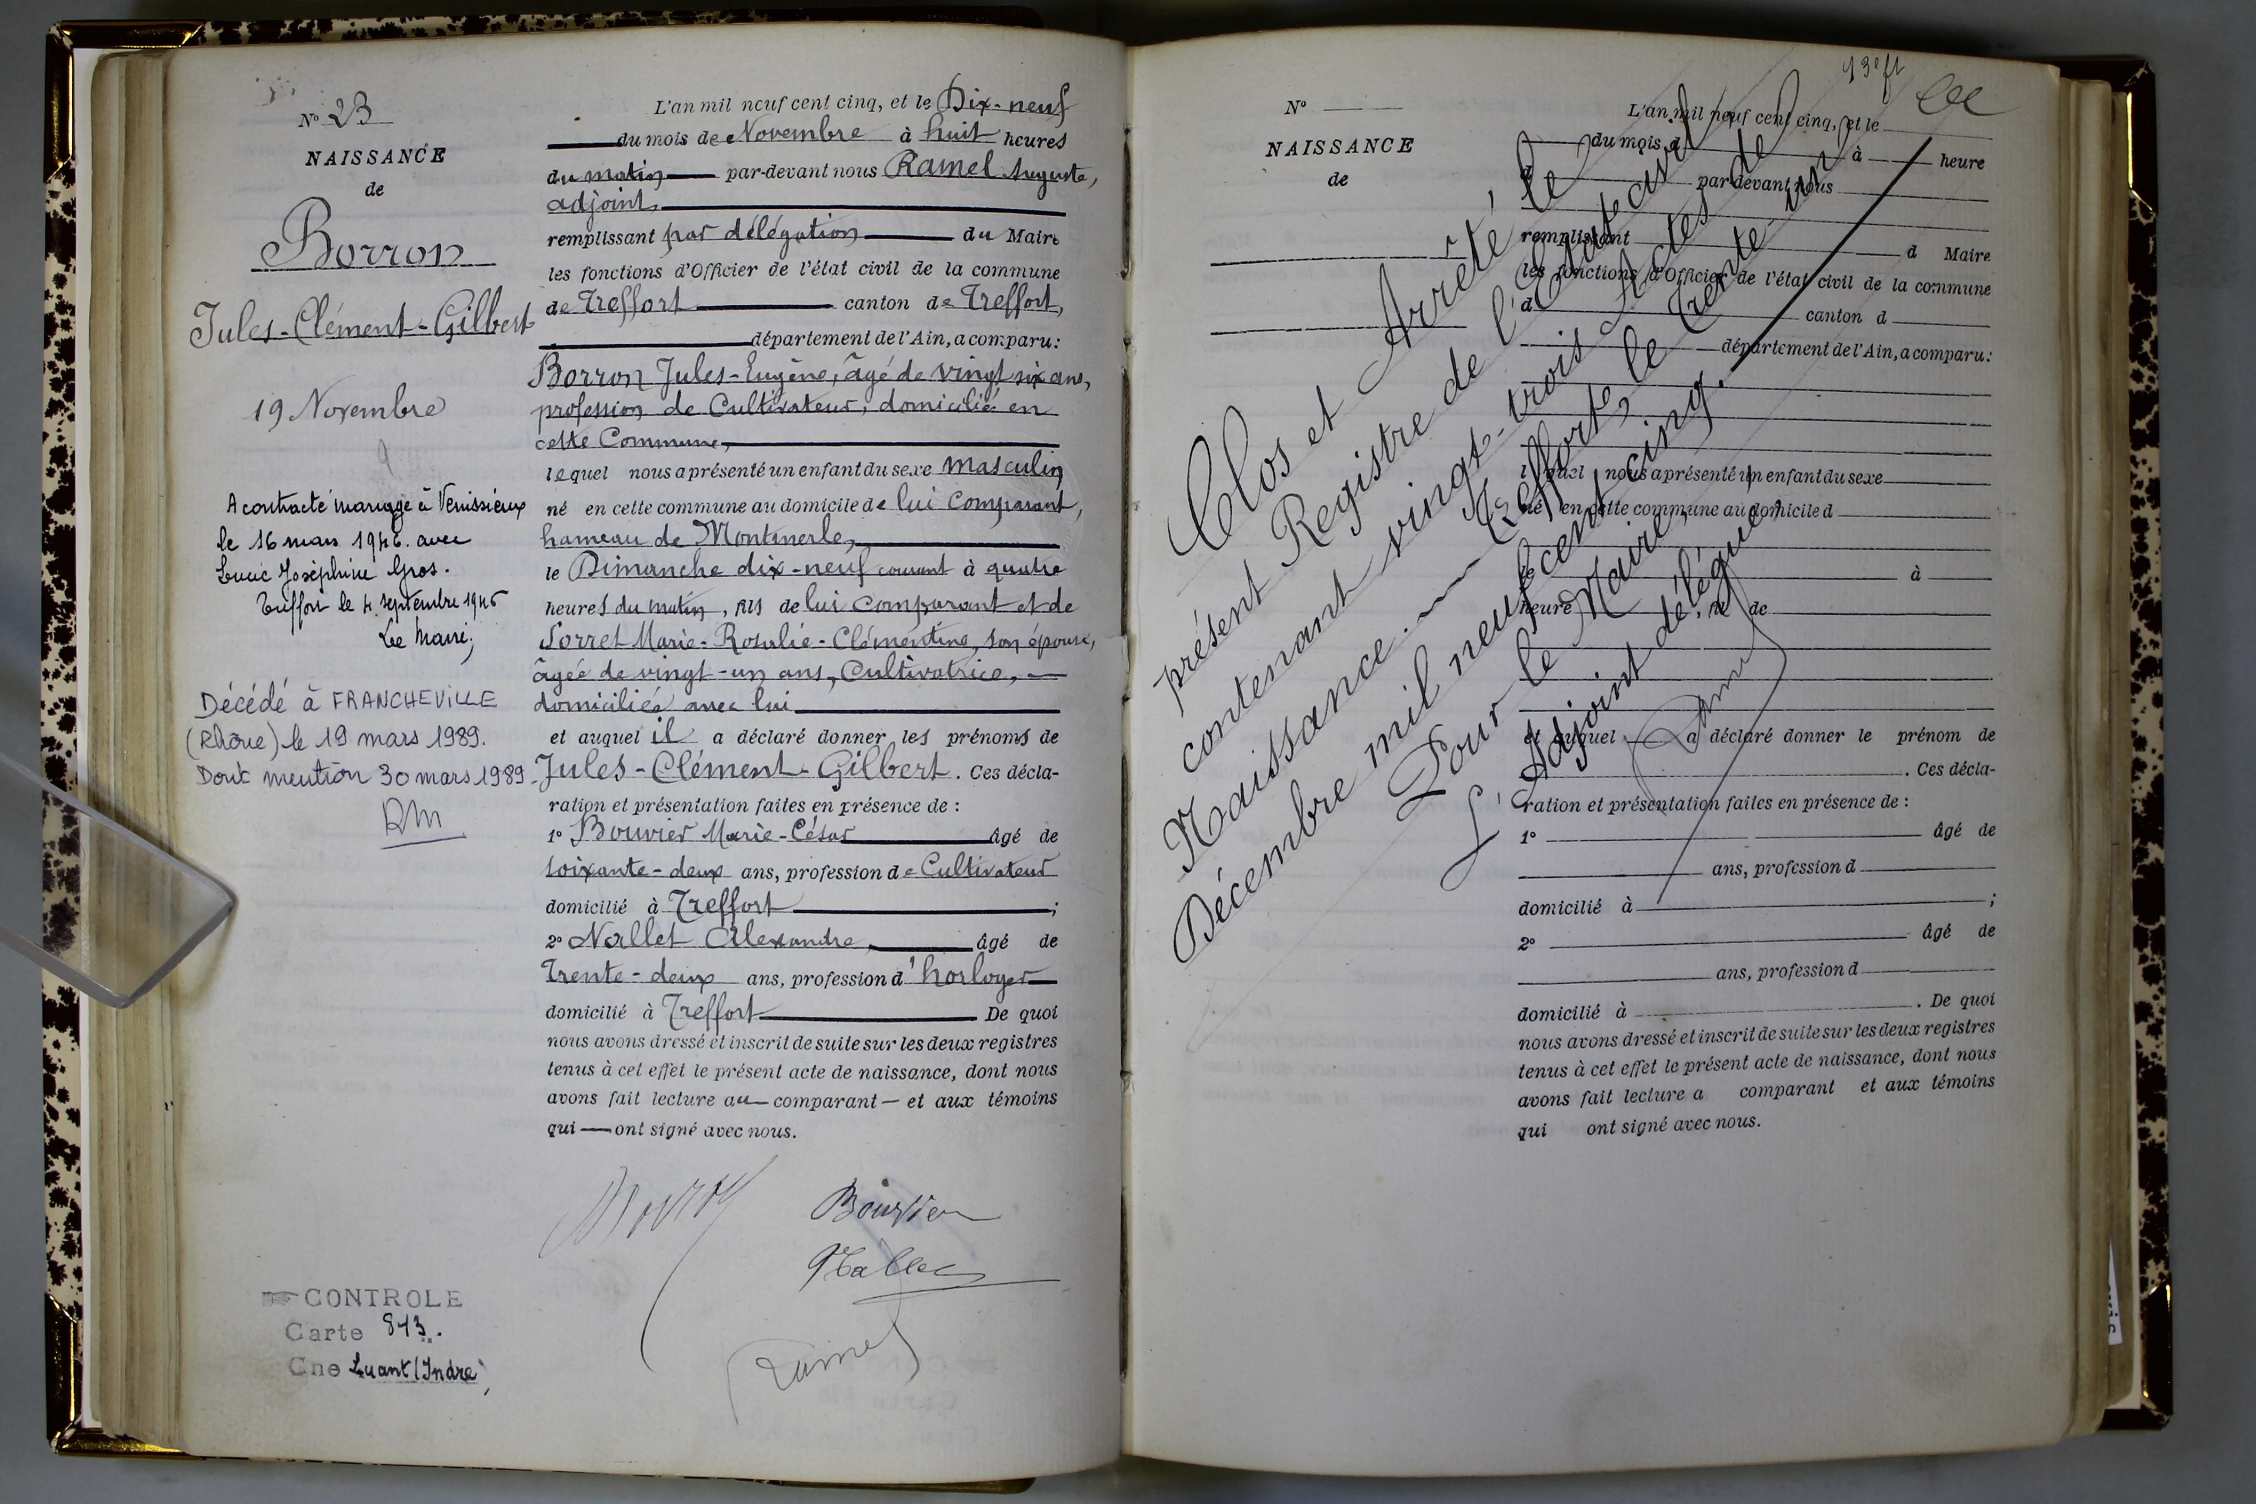 N° 23
NAISSANCE
de
Borron
Jules-Clément-Gilbert
19 Novembre
A contracté mariage à Venissieux
le 16 mars 1946. avec
Lucie Joséphine Gros.
Treffort le 4 septembre 1946
Le Maire,
Décédé à FRANCHEVILLE
(Rhône) le 19 mars 1989.
Dont mention 30 mars 1989.
CONTROLE
Carte 843.
Cne Luant (Indre)
L'an mil neuf cent cinq, et le Dix-neuf
du mois de Novembre à huit heures
du matin par-devant nous Ramel Auguste,
adjoint,
remplissant par délégation du Maire
les fonctions d'Officier de l'état civil de la commune
de Treffort canton de Treffort,
département de l'Ain, a comparu:
Borron Jules-Eugène, âgé de vingt six ans,
profession de Cultivateur, domicilié en
cette Commune,
lequel nous a présenté un enfant du sexe masculin
né en cette commune au domicile de lui comparant,
hameau de Montmerle,
le Dimanche dix-neuf courant à quatre
heures du matin, fils de lui comparant et de
Sorret Marie-Rosalie-Clémentine, son épouse,
âgée de vingt-un ans, Cultivatrice,
domiciliée avec lui
et auquel il a déclaré donner les prénoms de
Jules-Clément-Gilbert. Ces décla-
ration et présentation faites en présence de :
1° Bouvier Marie-César âgé de
soixante-deux ans, profession de Cultivateur
domicilié à Treffort ;
2° Nallet Alexandre, âgé de
Trente-deux ans, profession d'horloger
domicilié à Treffort De quoi
nous avons dressé et inscrit de suite sur les deux registres
tenus à cet effet le présent acte de naissance, dont nous
avons fait lecture au comparant et aux témoins
qui ont signé avec nous.
Borron
Bouvier
Nallet
Ramel
N°
NAISSANCE
de
L'an mil neuf cent cinq, et le
du mois d à heure
par-devant nous
remplissant d Maire
les fonctions d'Officier de l'état civil de la commune
d canton d
département de l'Ain, a comparu:
l quel nous a présenté un enfant du sexe
né en cette commune au domicile d
le à
heure , fil de
et auquel a déclaré donner le prénom de
. Ces décla-
ration et présentation faites en présence de :
1° âgé de
ans, profession d
domicilié à ;
2° âgé de
ans, profession d
domicilié à . De quoi
nous avons dressé et inscrit de suite sur les deux registres
tenus à cet effet le présent acte de naissance, dont nous
avons fait lecture a comparant et aux témoins
qui ont signé avec nous.
Clos et Arrêté le
présent Registre de l'Etat civil
contenant vingt-trois Actes de
Naissance. Treffort, le Trente-un
Décembre mil neuf cent cinq.
Pour le Maire,
L'Adjoint délégué,
Ramel